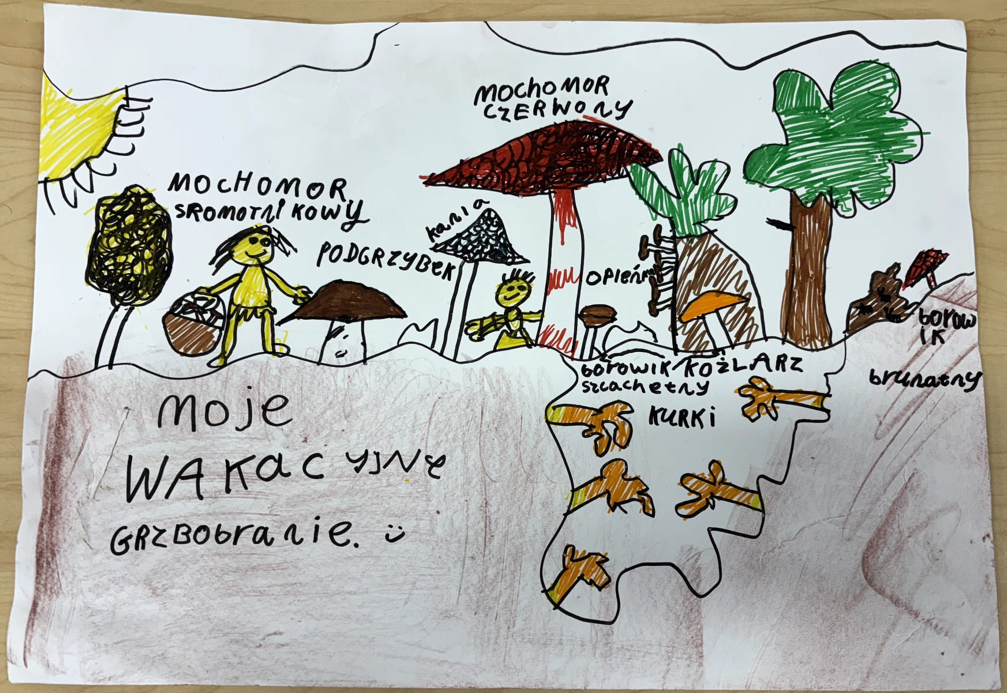 MOCHOMOR
CZERWONY
MOCHOMOR
SROMOTNIKOWY
kania
PODGRZYBEK
OPIEŃKI
borowik
szlachetny
KOŹLARZ
KURKI
borow
ik
brunatny
moje
WAKacyjNe
GRZBObranie. :)